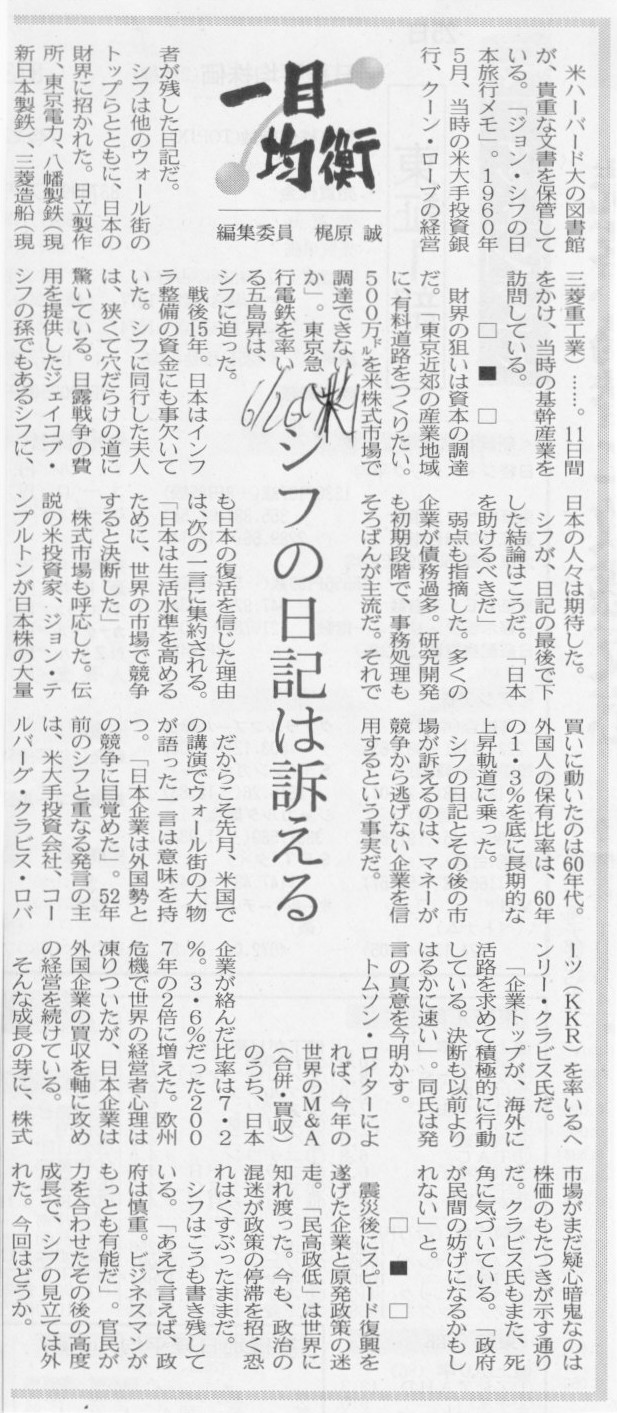 一目均衡
編集委員　梶原　誠
シフの日記は訴える
6/26
米ハーバード大の図書館
が、貴重な文書を保管して
いる。「ジョン・シフの日
本旅行メモ」。1960年
5月、当時の米大手投資銀
行、クーン・ローブの経営
者が残した日記だ。
シフは他のウォール街の
トップらとともに、日本の
財界に招かれた。日立製作
所、東京電力、八幡製鉄（現
新日本製鉄）、三菱造船（現
三菱重工業）……。11日間
をかけ、当時の基幹産業を
訪問している。
□　■　□
財界の狙いは資本の調達
だ。「東京近郊の産業地域
に、有料道路をつくりたい。
500万㌦を米株式市場で
調達できない
か」。東京急
行電鉄を率い
る五島昇は、
シフに迫った。
戦後15年。日本はインフ
ラ整備の資金にも事欠いて
いた。シフに同行した夫人
は、狭くて穴だらけの道に
驚いている。日露戦争の費
用を提供したジェイコブ・
シフの孫でもあるシフに、
日本の人々は期待した。
シフが、日記の最後で下
した結論はこうだ。「日本
を助けるべきだ」
弱点も指摘した。多くの
企業が債務過多。研究開発
も初期段階で、事務処理も
そろばんが主流だ。それで
も日本の復活を信じた理由
は、次の一言に集約される。
「日本は生活水準を高める
ために、世界の市場で競争
すると決断した」
株式市場も呼応した。伝
説の米投資家、ジョン・テ
ンプルトンが日本株の大量
買いに動いたのは60年代。
外国人の保有比率は、60年
の1・3％を底に長期的な
上昇軌道に乗った。
シフの日記とその後の市
場が訴えるのは、マネーが
競争から逃げない企業を信
用するという事実だ。
だからこそ先月、米国で
の講演でウォール街の大物
が語った一言は意味を持
つ。「日本企業は外国勢と
の競争に目覚めた」。52年
前のシフと重なる発言の主
は、米大手投資会社、コー
ルバーグ・クラビス・ロバ
ーツ（KKR）を率いるヘ
ンリー・クラビス氏だ。
「企業トップが、海外に
活路を求めて積極的に行動
している。決断も以前より
はるかに速い」。同氏は発
言の真意を今明かす。
トムソン・ロイターによ
れば、今年の
世界のM&A
（合併・買収）
のうち、日本
企業が絡んだ比率は7・2
％。3・6％だった200
7年の2倍に増えた。欧州
危機で世界の経営者心理は
凍りついたが、日本企業は
外国企業の買収を軸に攻め
の経営を続けている。
そんな成長の芽に、株式
市場がまだ疑心暗鬼なのは
株価のもたつきが示す通り
だ。クラビス氏もまた、死
角に気づいている。「政府
が民間の妨げになるかもし
れない」と。
□　■　□
震災後にスピード復興を
遂げた企業と原発政策の迷
走。「民高政低」は世界に
知れ渡った。今も、政治の
混迷が政策の停滞を招く恐
れはくすぶったままだ。
シフはこうも書き残して
いる。「あえて言えば、政
府は慎重。ビジネスマンが
もっとも有能だ」。官民が
力を合わせたその後の高度
成長で、シフの見立ては外
れた。今回はどうか。